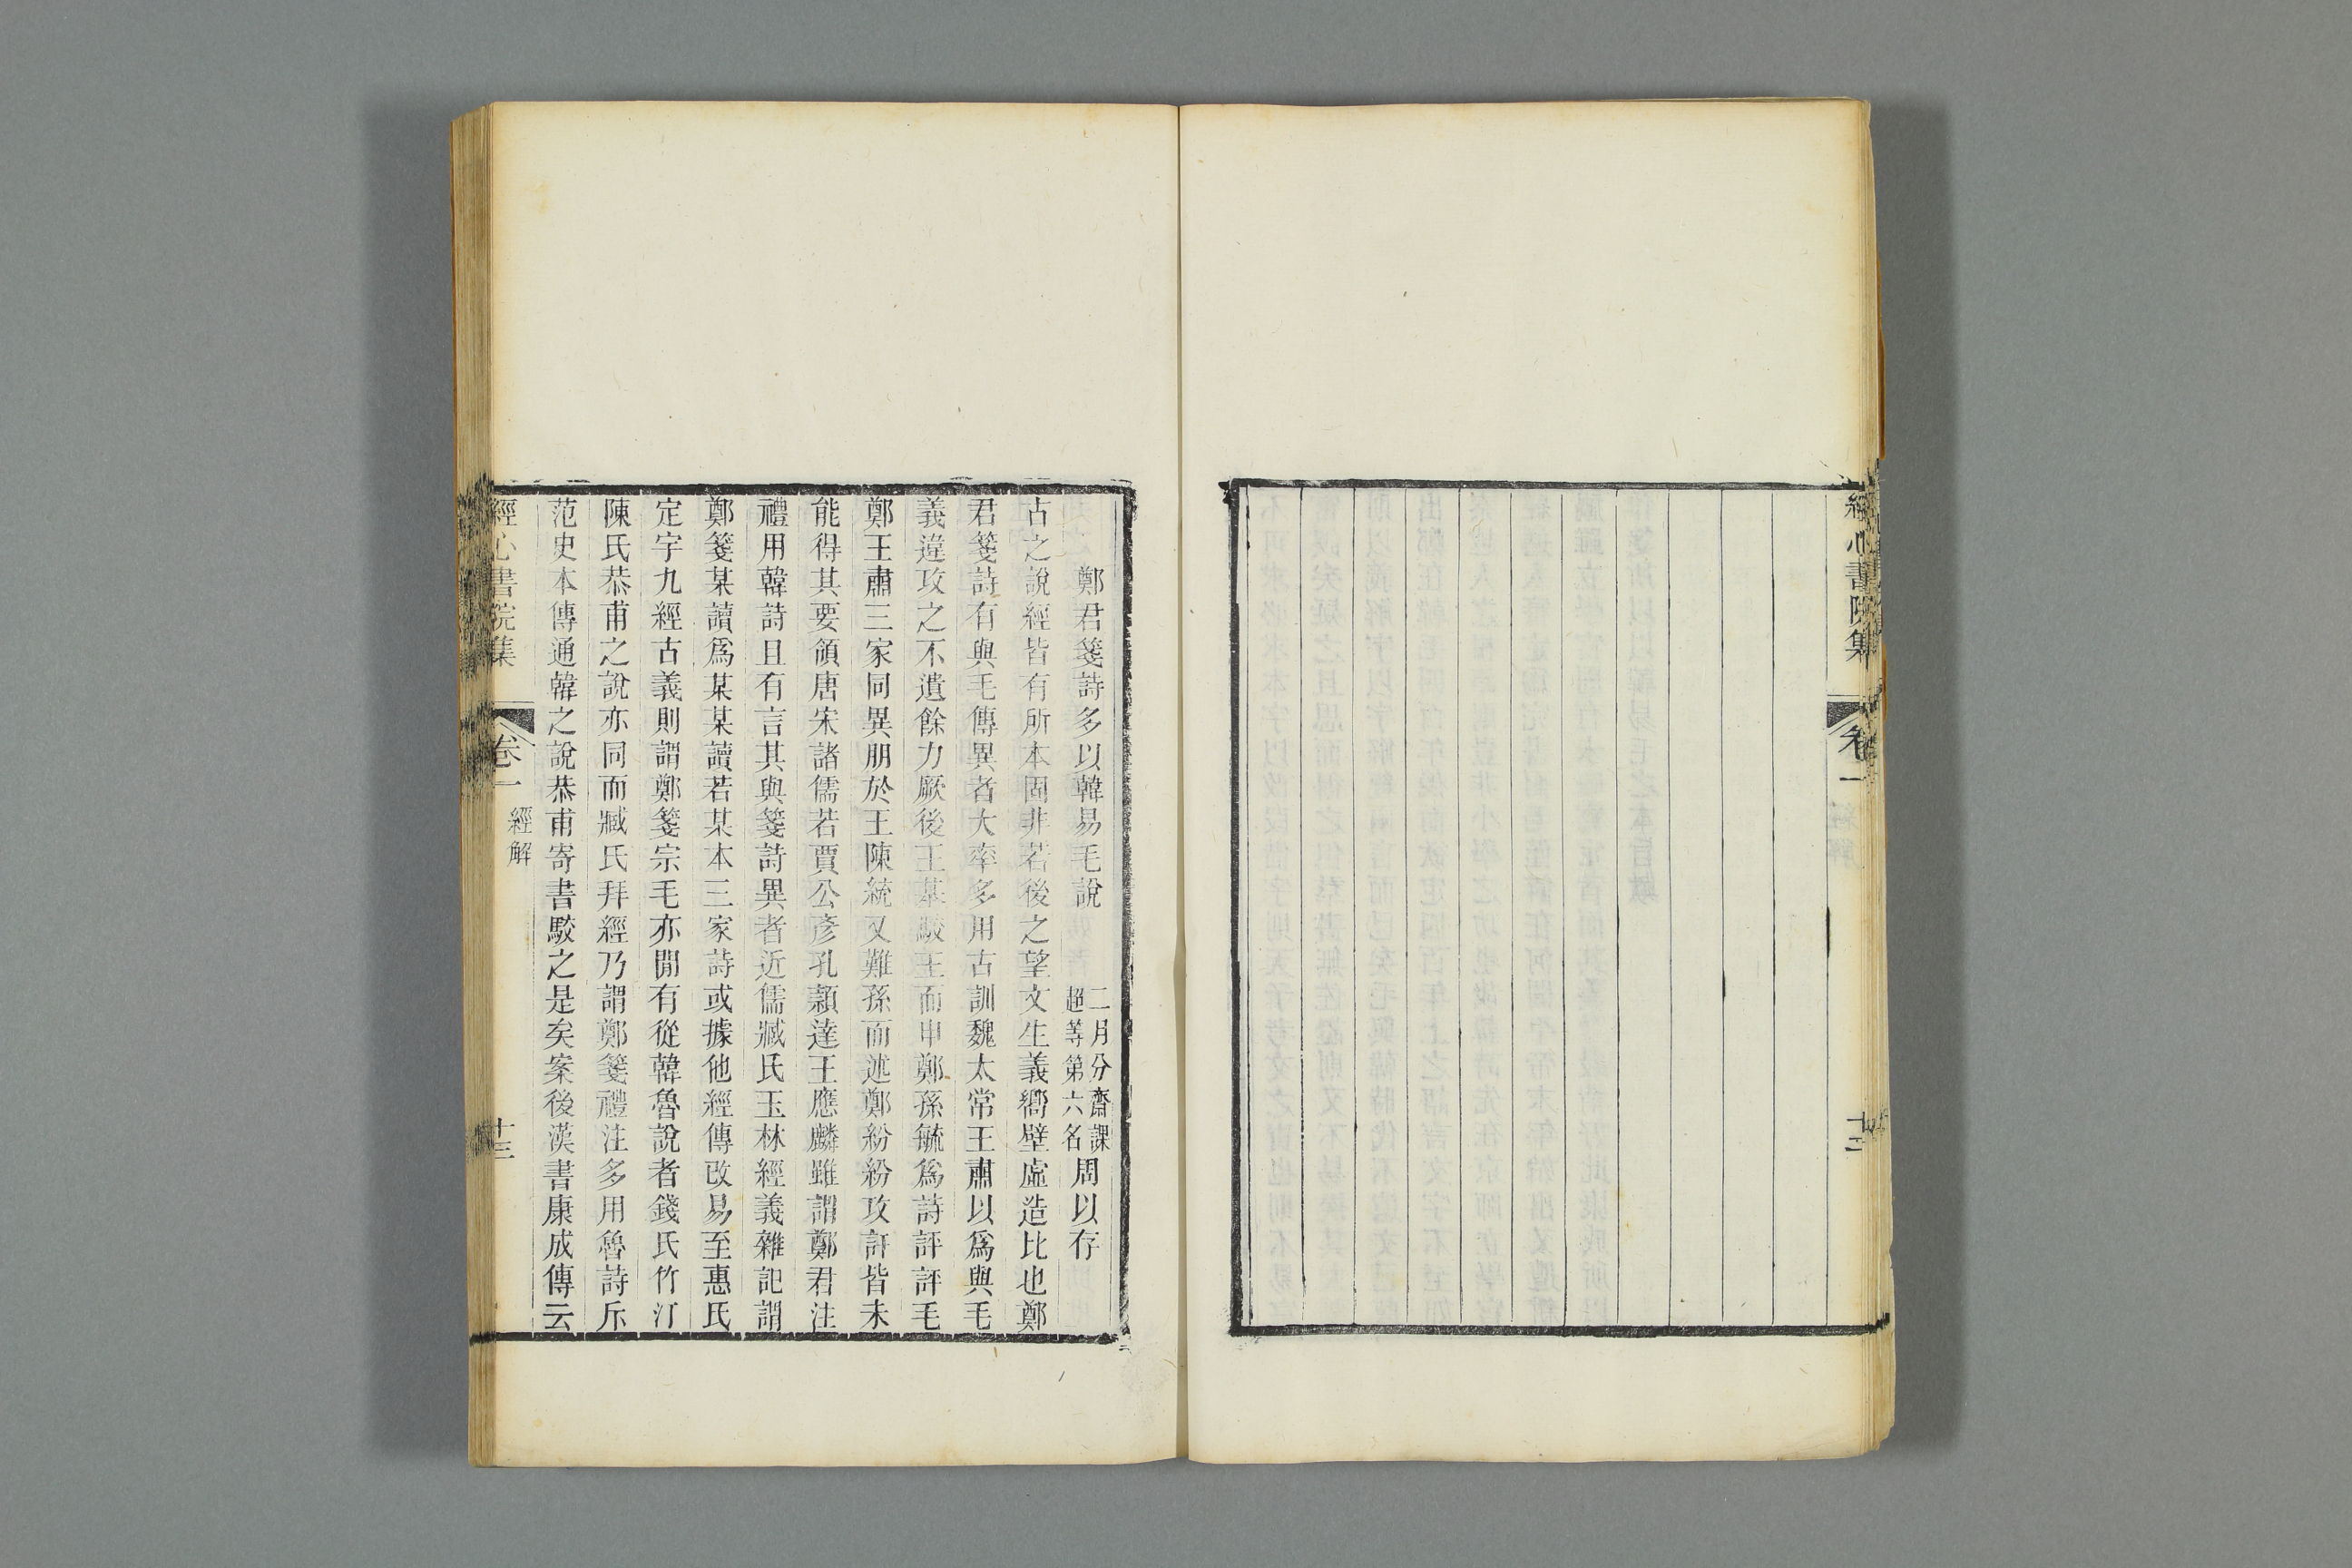 經心書院集
卷一
十二
鄭君箋詩多以韓易毛說
二月分齋課
超等第六名
周以存
古之說經皆有所本固非若後之望文生義嚮壁虛造比也鄭
君箋詩有與毛傳異者大率多用古訓魏太常王肅以爲與毛
義違攻之不遺餘力厥後王基駮王而申鄭孫毓爲詩評評毛
鄭王肅三家同異朋於王陳統又難孫而述鄭紛紛攻訐皆未
能得其要領唐宋諸儒若賈公彥孔穎達王應麟雖謂鄭君注
禮用韓詩且有言其與箋詩異者近儒臧氏玉林經義雜記謂
鄭箋某讀爲某某讀若某本三家詩或據他經傳改易至惠氏
定宇九經古義則謂鄭箋宗毛亦閒有從韓魯說者錢氏竹汀
陳氏恭甫之說亦同而臧氏拜經乃謂鄭箋禮注多用魯詩斥
范史本傳通韓之說恭甫寄書駮之是矣案後漢書康成傳云
經心書院集
卷一
經解
十三